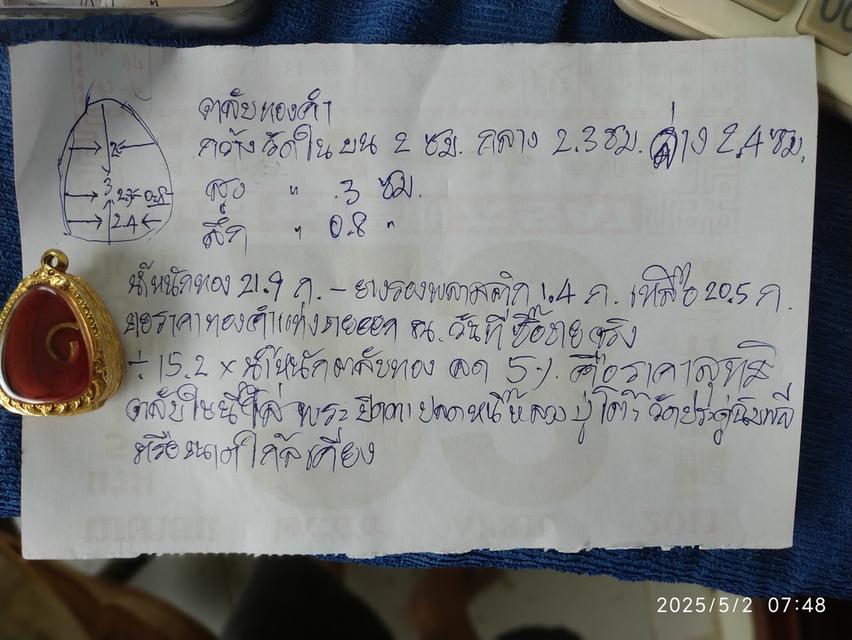 ตลับทองคำ
กว้าง วัดใน บน 2 ซม. กลาง 2.3 ซม. ล่าง 2.4 ซม.
สูง " 3 ซม.
ลึก " 0.8 "
2
3
2.3
0.8
2.4
น้ำหนักทอง 21.9 ก. - ยางรองพลาสติก 1.4 ก. เหลือ 20.5 ก.
ขายราคาทองคำแท่งขายออก ณ. วันที่ ซื้อขายจริง
÷ 15.2 x น้ำหนักตลับทอง ลด 5% คือราคาสุทธิ
ตลับใบนี้ใส่ พระ ปิดตา ปลดหนี้ หลวงปู่โต๊ะ วัดประดู่ฉิมพลี
หรือขนาดใกล้เคียง
2025/5/2 07:48